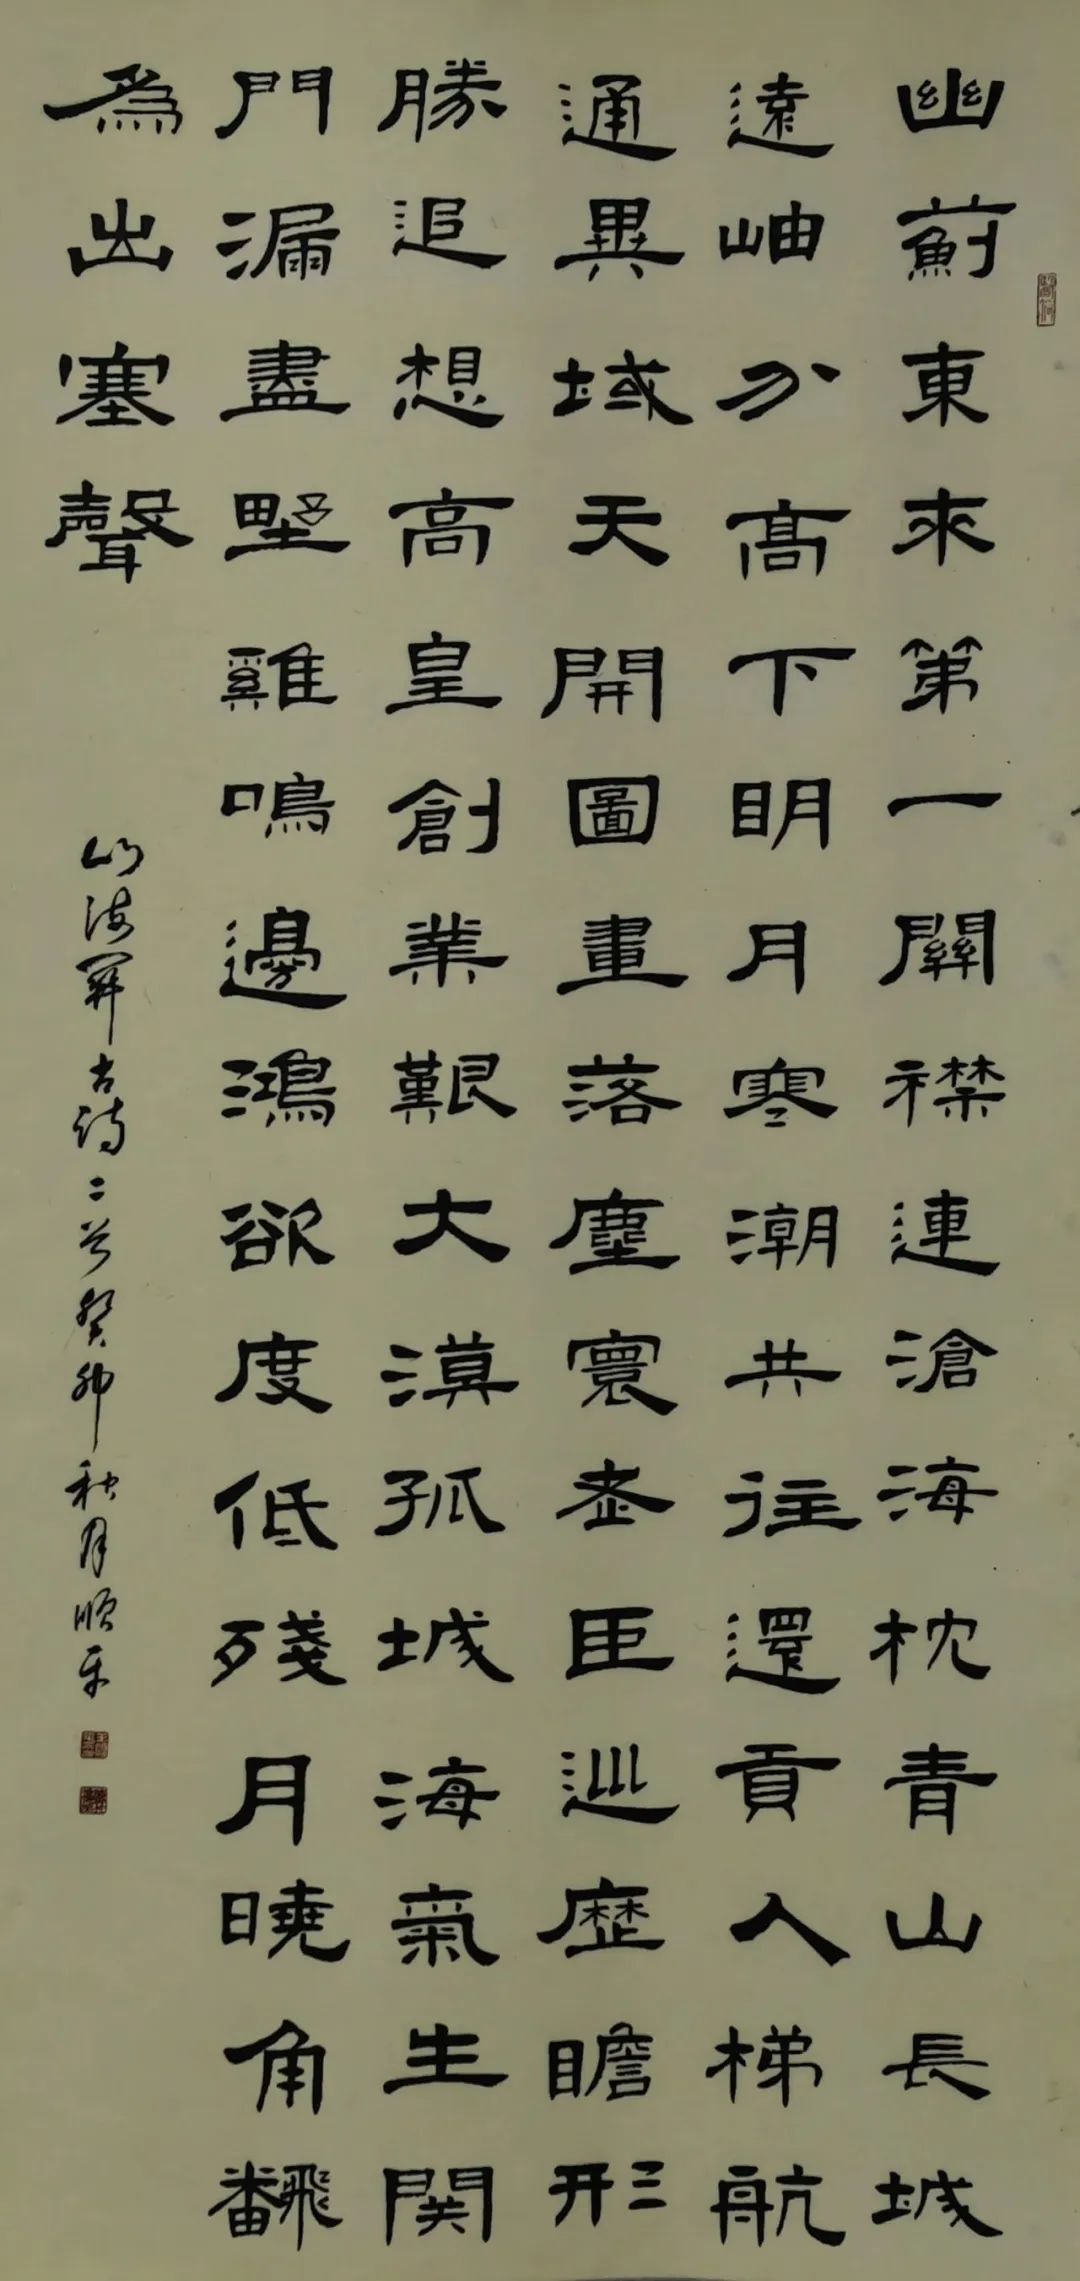 幽薊東來第一關襟連滄海枕青山長城
遠岫分高下明月寒潮共往還貢入梯航
通異域天開圖畫落塵寰老臣巡歷瞻形
勝追想高皇創業艱大漠孤城海氣生関
門漏盡野雞鳴邊鴻欲度低殘月曉角飜
為出塞聲
山海關古詩二首癸卯秋月順平